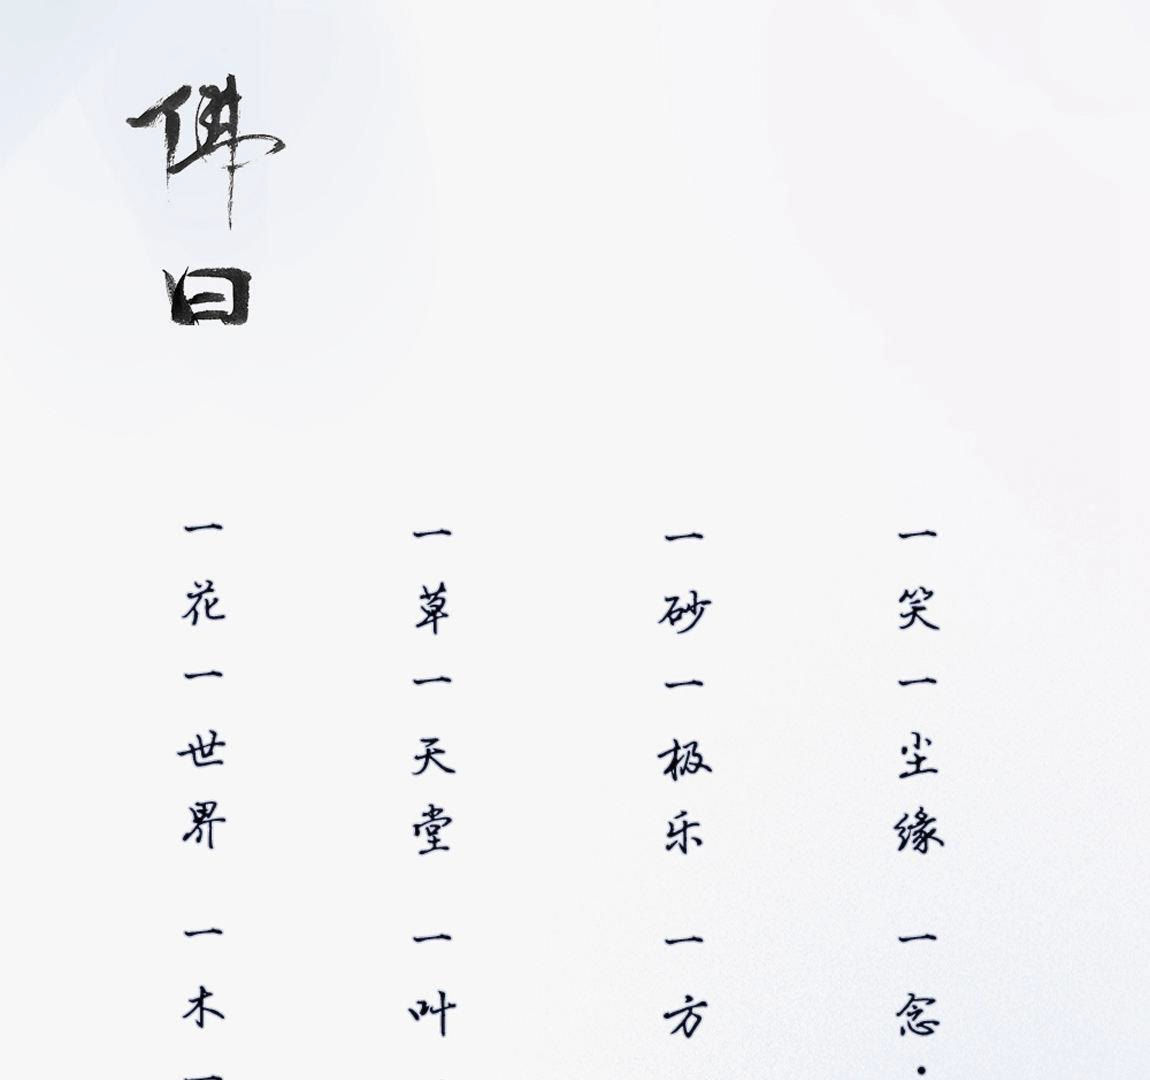 佛曰
一花一世界
一木
一草一天堂
一叶
一砂一极乐
一方
一笑一尘缘
一念